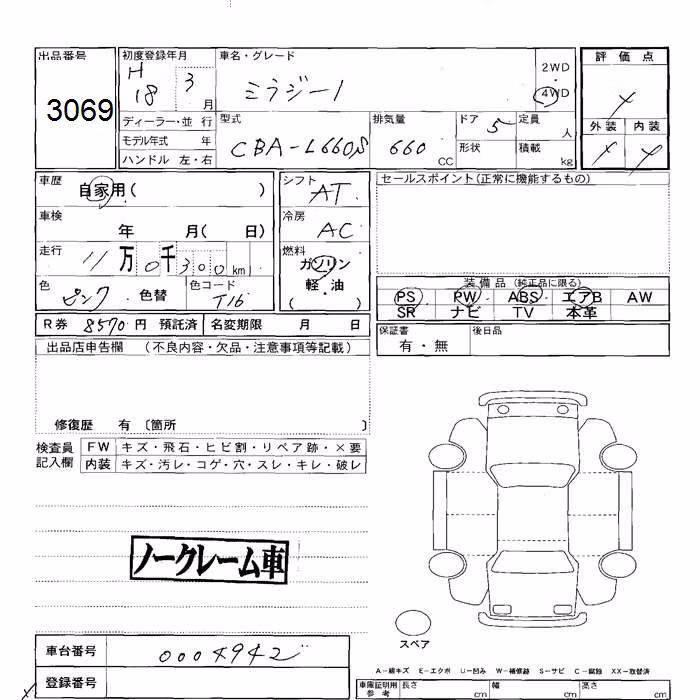 出品番号
3069
初度登録年月
H 18 3 月
車名・グレード
ミラジーノ
2WD
4WD
評価点
ディーラー・並行
モデル年式 年
ハンドル 左・右
型式
CBA-L660S
排気量
660 CC
ドア 5
形状
定員 人
積載 kg
外装 内装
車歴
自家用( )
車検
年 月( 日)
走行
11 万 0 千 300 km
色
ピンク 色替
色コード
T16
シフト
AT
冷房
AC
燃料
ガソリン
軽・油
( )
セールスポイント(正常に機能するもの)
装備品(純正品に限る)
PS PW ABS エアB AW
SR ナビ TV 本革
R券 8570 円 預託済
名変期限 月 日
保証書
有・無
後日品
出品店申告欄 (不良内容・欠品・注意事項等記載)
修復歴 有〔箇所 〕
検査員
記入欄
FW キズ・飛石・ヒビ割・リペア跡・×要
内装 キズ・汚レ・コゲ・穴・スレ・キレ・破レ
ノークレーム車
スペア
車台番号
0004942
登録番号
A-線キズ E-エクボ U-凹み W-補修跡 S-サビ C-腐蝕 XX-取替済
車庫証明用
参考
長さ cm
幅 cm
高さ cm